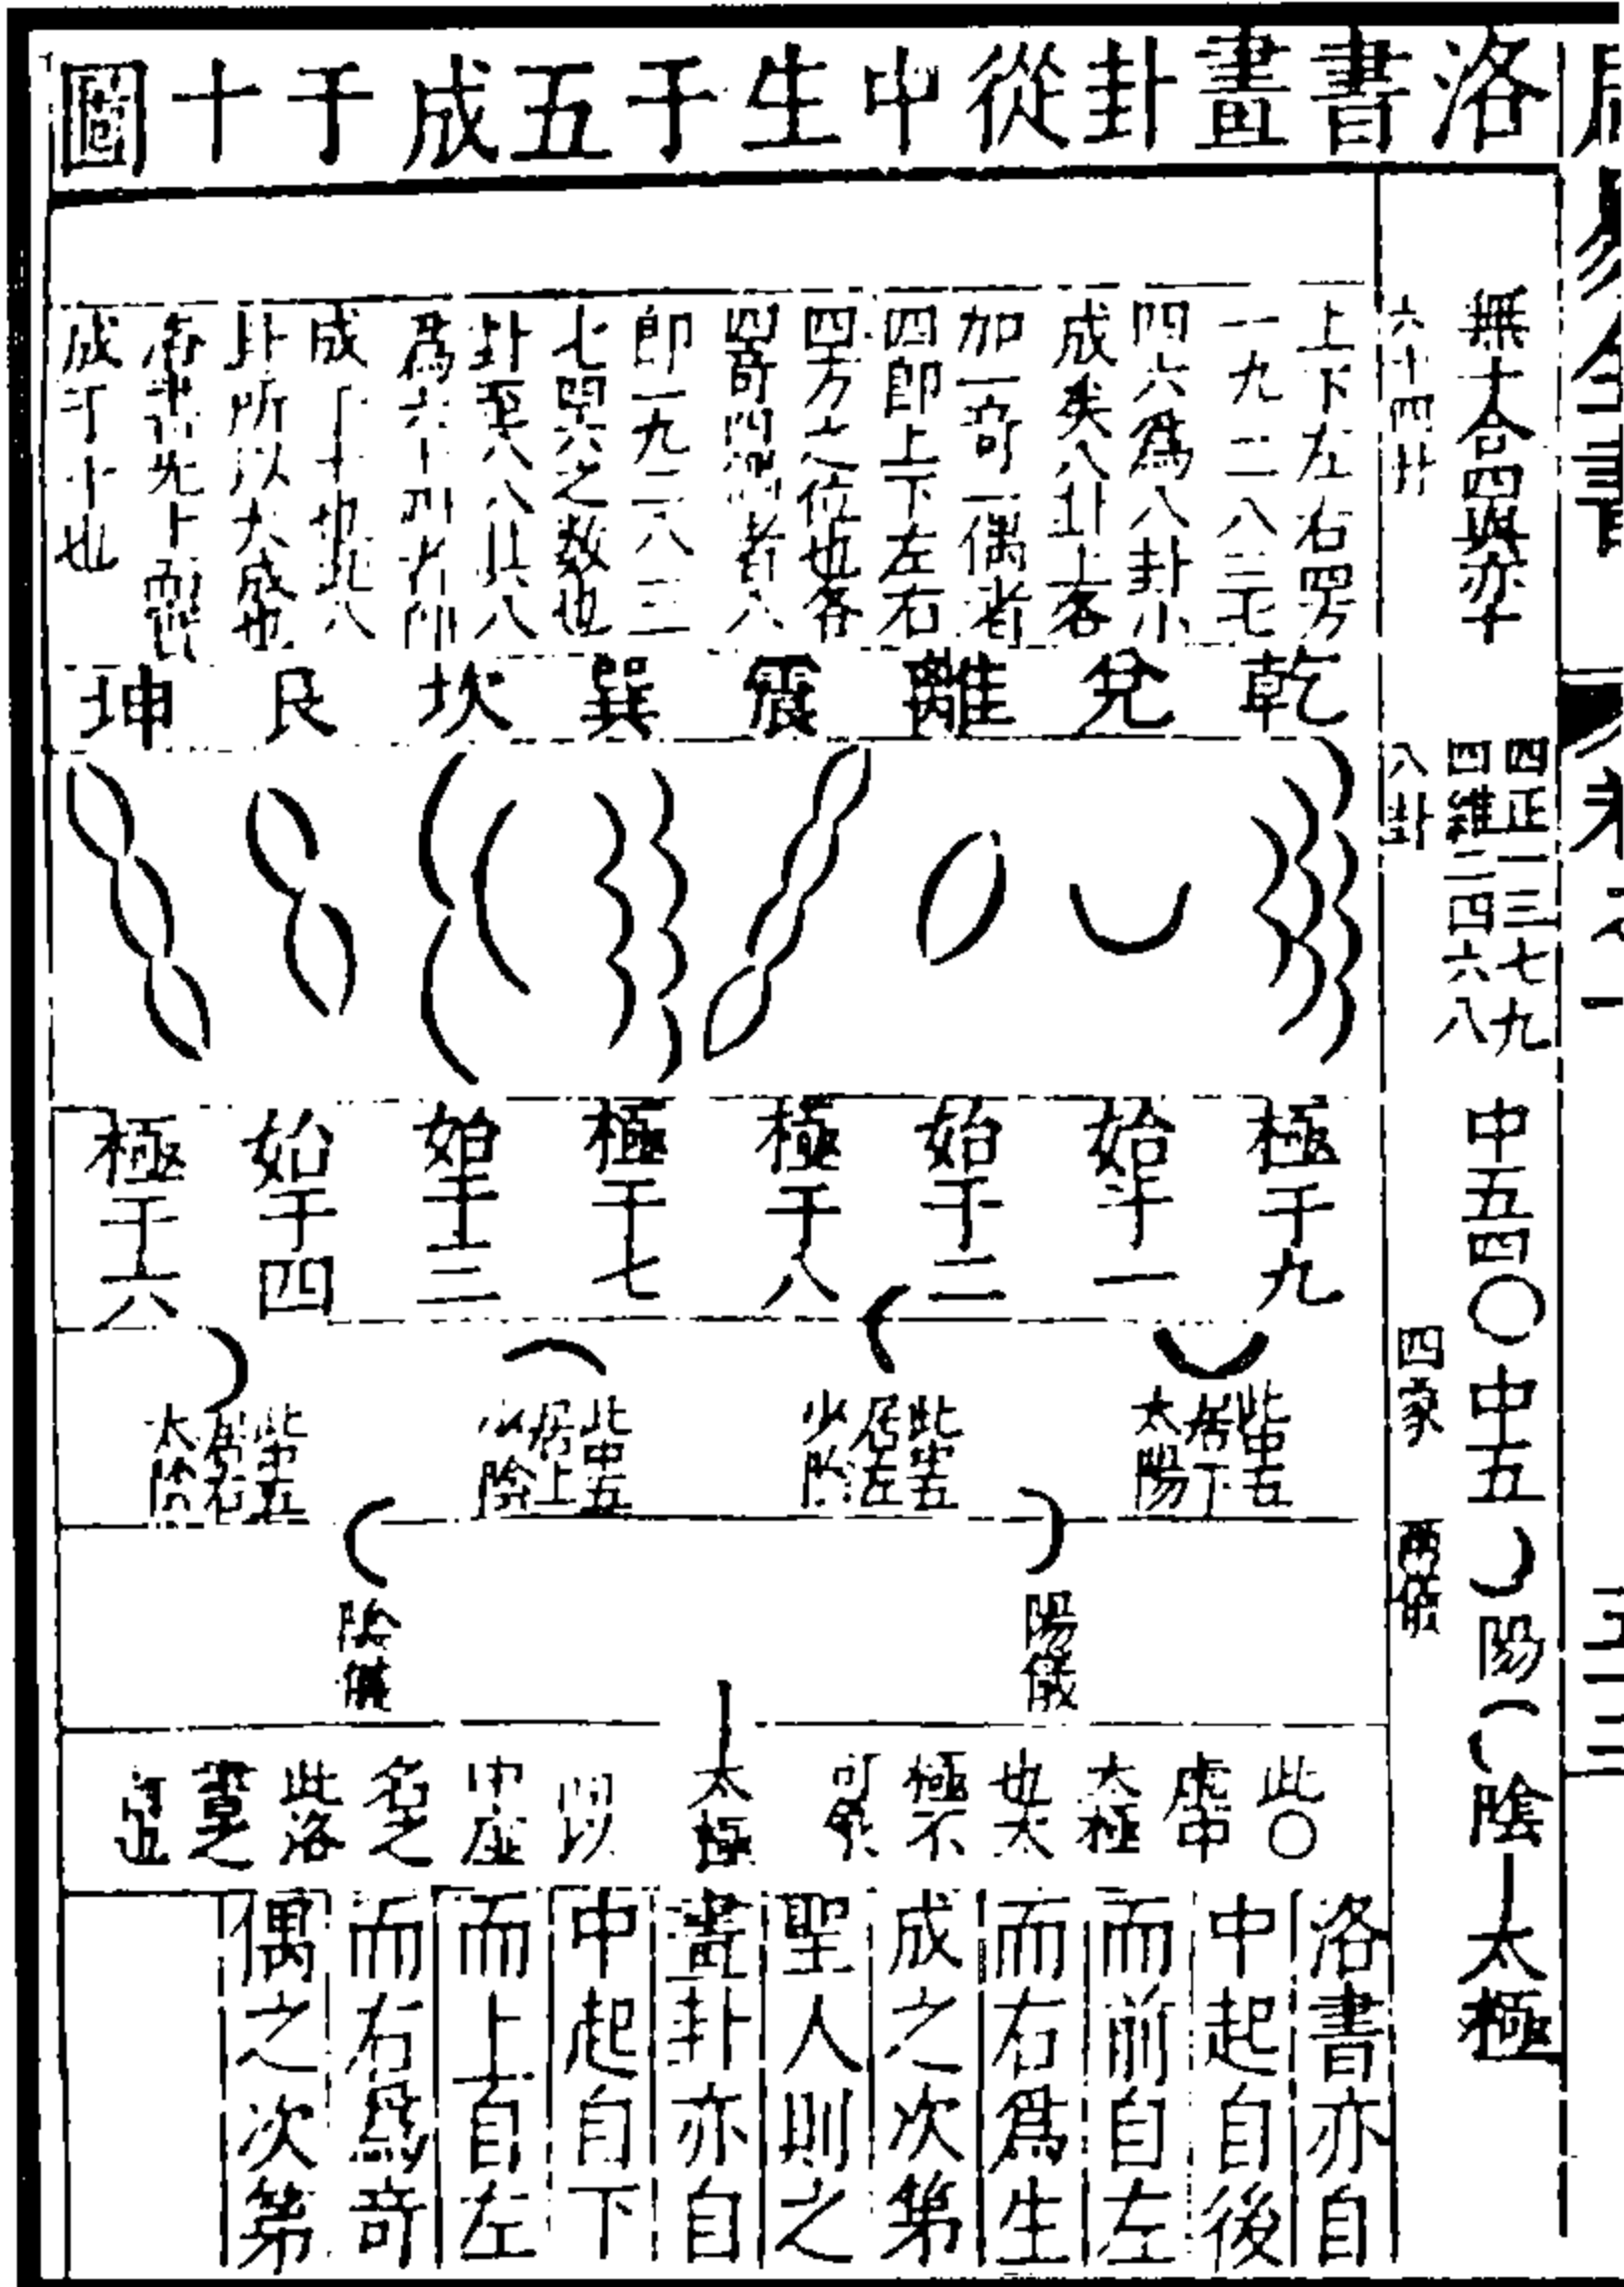 洛書畫卦從中生于五成于十圖
無十合四與亦十
四正一三七九
四維二四六八
中五四〇中五
陽
陰
太極
六十四卦
八卦
四象
兩儀
上下左右四方
一九二八三七
四六為八卦小
成矣八卦上各
加一奇一偶者
四即上下左右
四方之位也各
四奇四偶者八
即一九二八三
七四六之數也
卦至八八其八
為六十四者仰
成于十也此八
卦所以大成也
洛書
成于十也
乾
兌
離
震
巽
坎
艮
坤
極于九
始于一
始于二
極于八
極于七
始于三
始于四
極于六
此中五
居下
太陽
此中五
居左
少陰
此中五
居上
少陰
此中五
居右
太陰
陽儀
陰儀
此〇
虛中
太極
也太
極不
可見
太極
以
中虛
名之
此洛
書之
洛書亦自
中起自後
而前自左
而右為生
成之次第
聖人則之
畫卦亦自
中起自下
而上自左
而右為奇
偶之次第